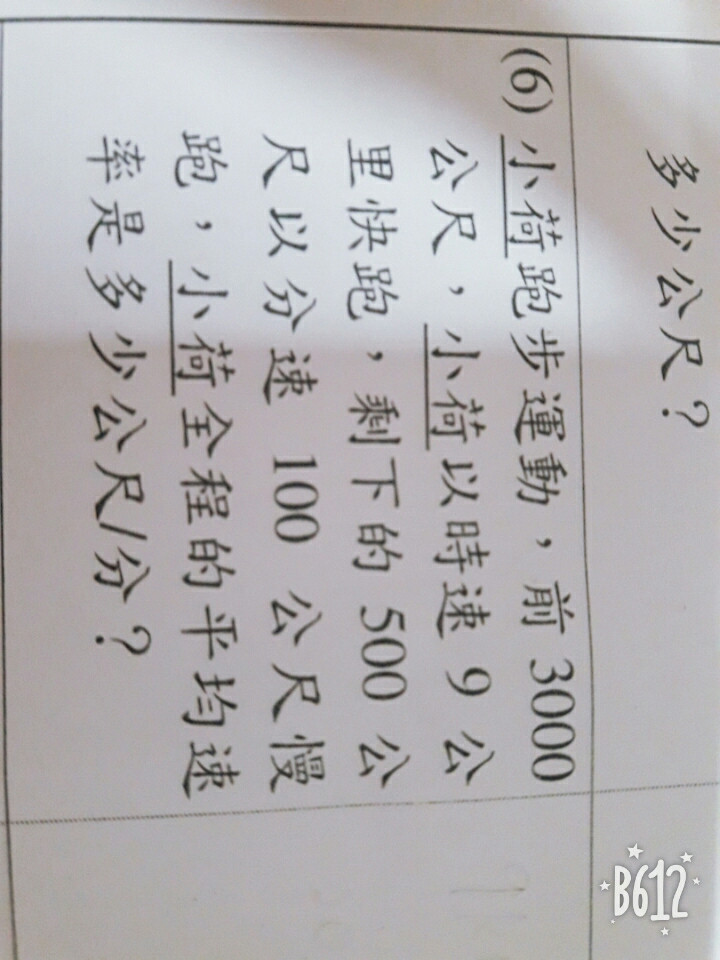 多少公尺？
(6) 小荷跑步運動，前 3000
公尺，小荷以時速 9 公
里快跑，剩下的 500 公
尺以分速 100 公尺慢
跑，小荷全程的平均速
率是多少公尺/分？
B612